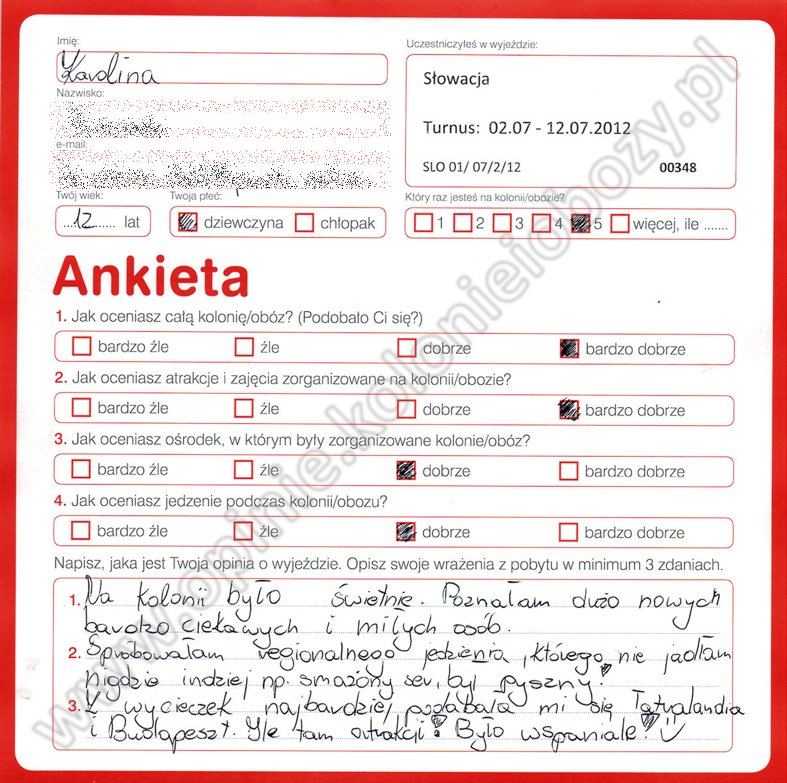 Imię:
Karolina
Uczestniczyłeś w wyjeździe:
Słowacja
Turnus: 02.07 - 12.07.2012
SLO 01/ 07/2/12 00348
Nazwisko:
e-mail:
Twój wiek:
12 lat
Twoja płeć:
dziewczyna chłopak
Który raz jesteś na kolonii/obozie?
1 2 3 4 5 więcej, ile .......
Ankieta
1. Jak oceniasz całą kolonię/obóz? (Podobało Ci się?)
bardzo źle źle dobrze bardzo dobrze
2. Jak oceniasz atrakcje i zajęcia zorganizowane na kolonii/obozie?
bardzo źle źle dobrze bardzo dobrze
3. Jak oceniasz ośrodek, w którym były zorganizowane kolonie/obóz?
bardzo źle źle dobrze bardzo dobrze
4. Jak oceniasz jedzenie podczas kolonii/obozu?
bardzo źle źle dobrze bardzo dobrze
Napisz, jaka jest Twoja opinia o wyjeździe. Opisz swoje wrażenia z pobytu w minimum 3 zdaniach.
1. Na kolonii było świetnie. Poznałam dużo nowych
bardzo ciekawych i miłych osób.
2. Spróbowałam regionalnego jedzenia, którego nie jadłam
nigdzie indziej np. smażony ser, był pyszny!
3. Z wycieczek najbardziej podobała mi się Tatralandia
i Budapeszt. Ile tam atrakcji! Było wspaniale!
www.opinie.kolonieiobozy.pl